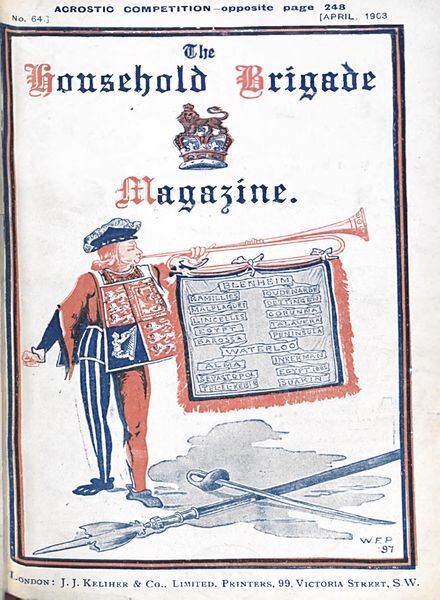 ACROSTIC COMPETITION—opposite page 248
No. 64.] [APRIL, 1903
The
Household Brigade
Magazine.
BLENHEIM
RAMILLIES OUDENARDE
MALPLAQUET DETTINGEN
LINCELLES CORUNNA
EGYPT TALAVERA
BAROSSA PENINSULA
WATERLOO
ALMA INKERMAN
SEVASTOPOL EGYPT 1882
TEL-EL-KEBIR SUAKIN
W.F.P
'97
LONDON: J. J. KELIHER & CO., LIMITED, PRINTERS, 99, VICTORIA STREET, S.W.